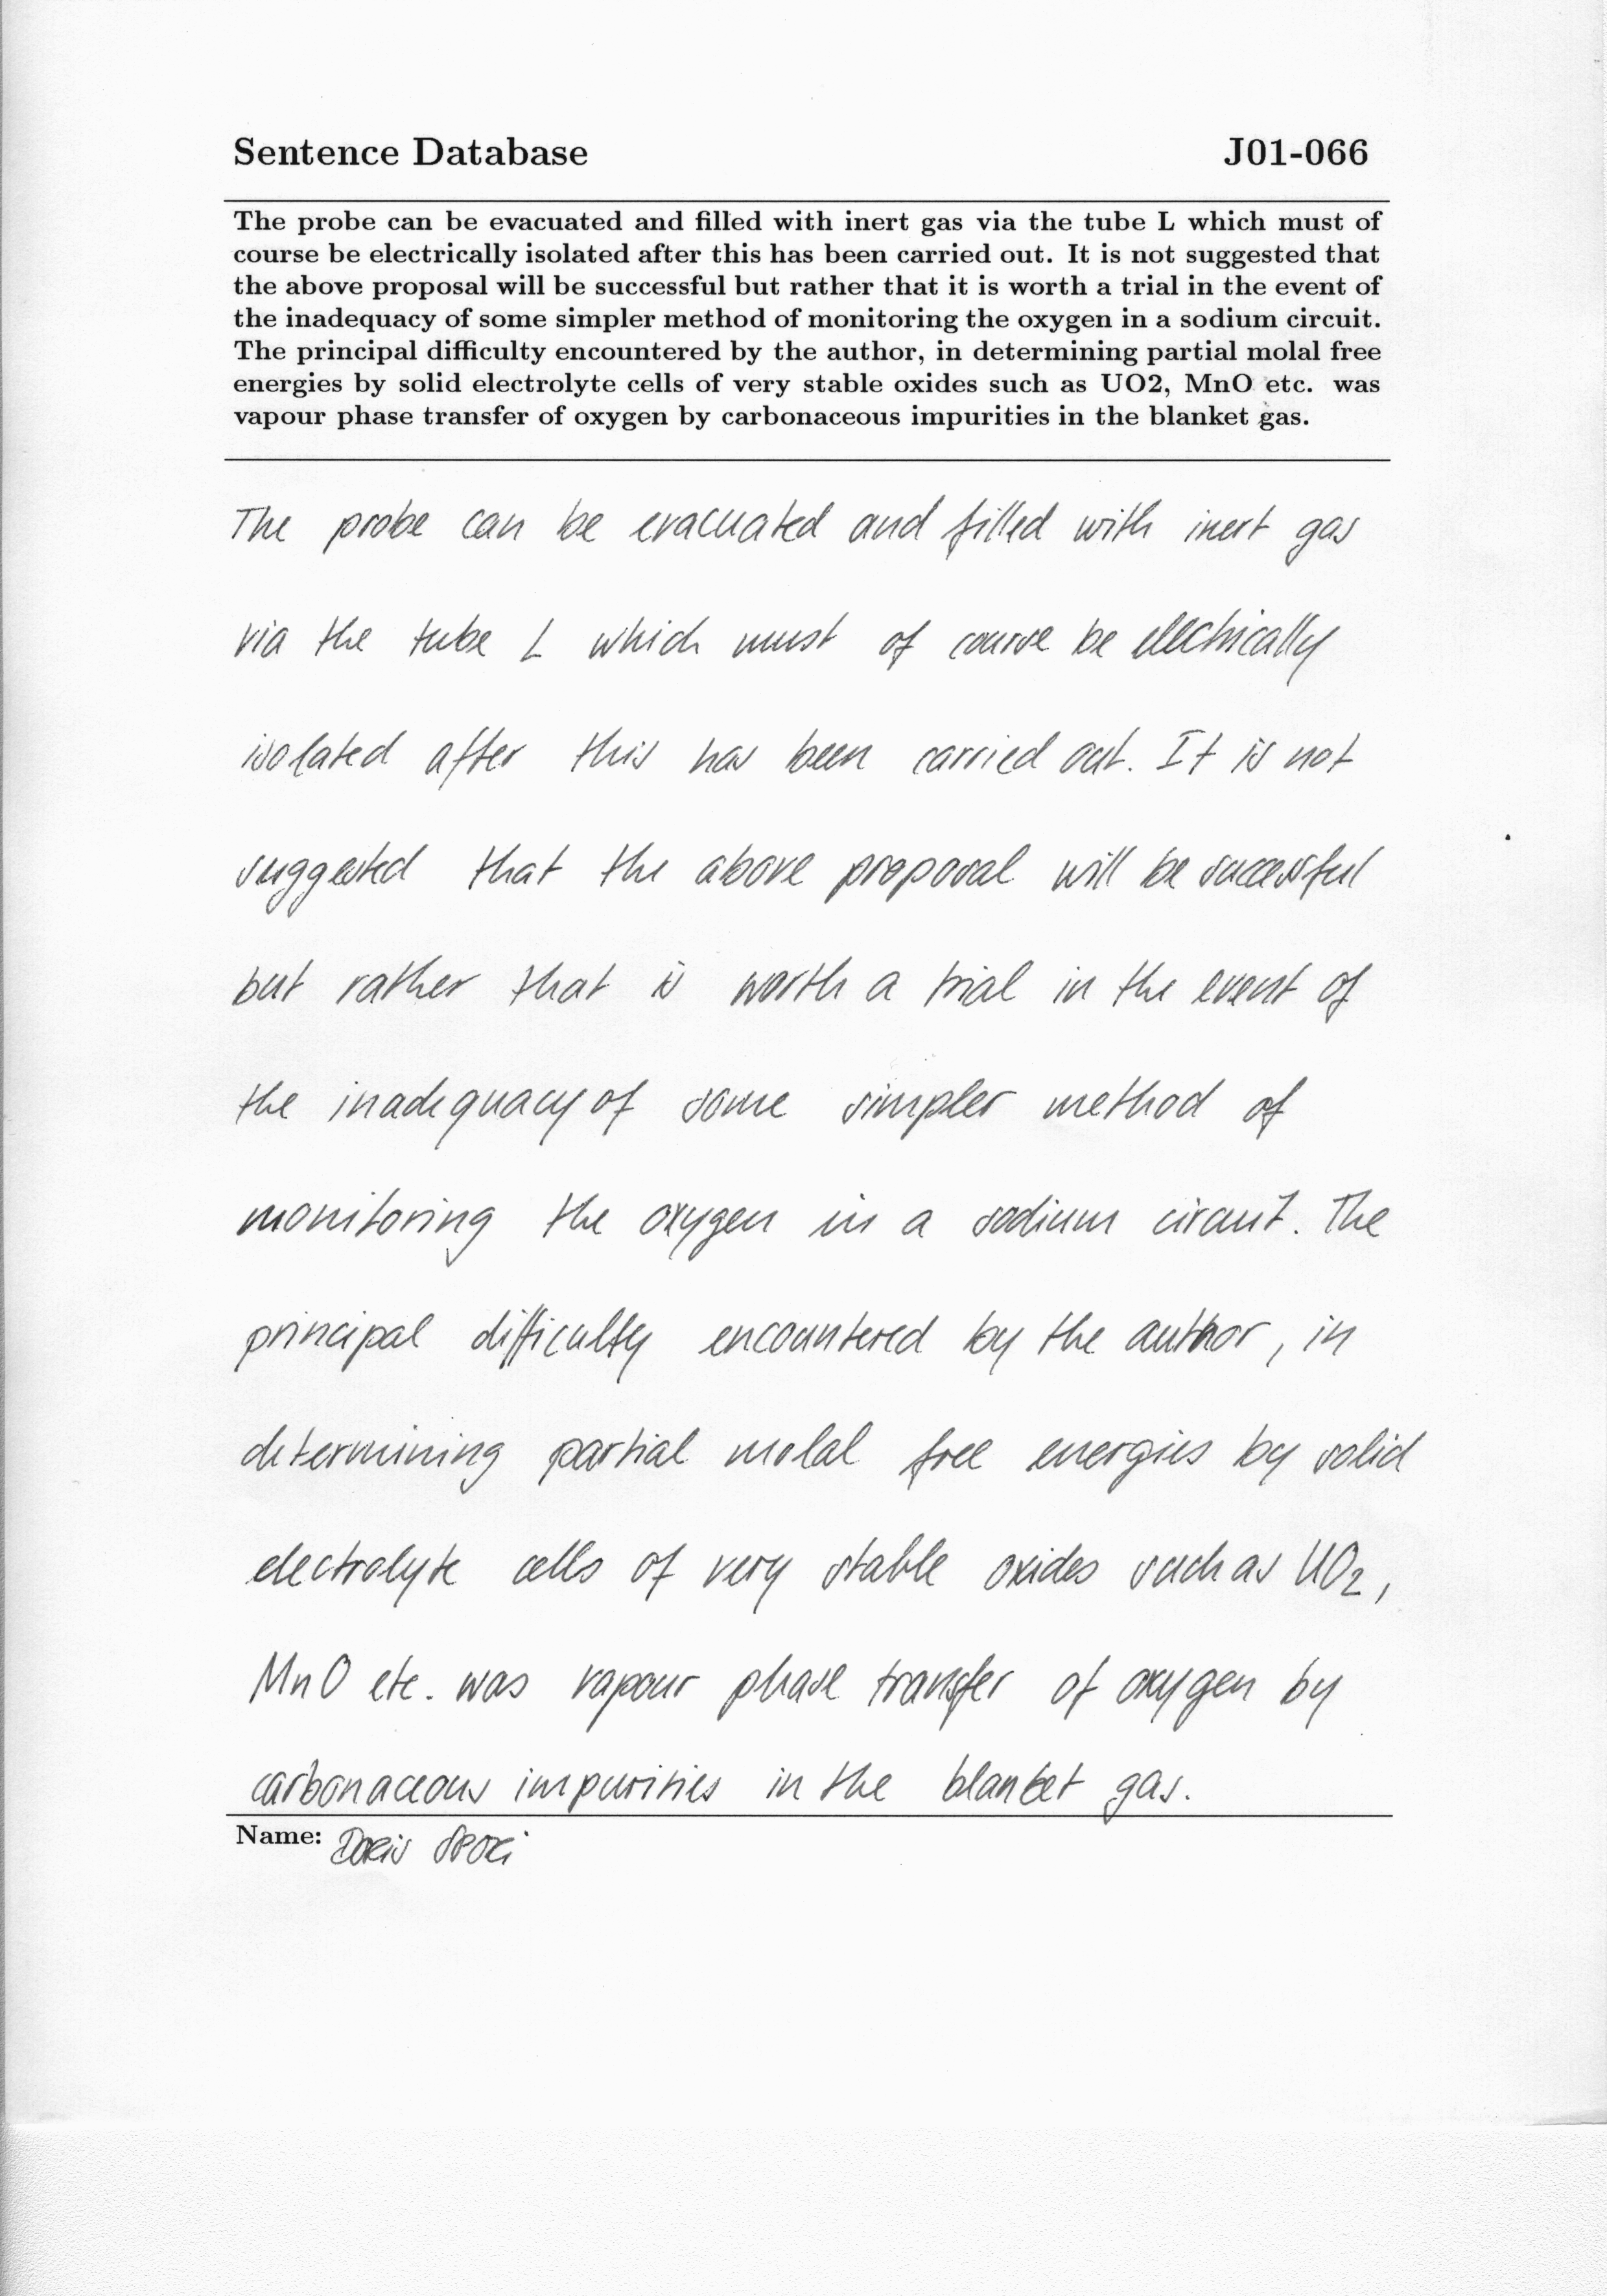 Sentence Database J01-066
The probe can be evacuated and filled with inert gas via the tube L which must of
course be electrically isolated after this has been carried out. It is not suggested that
the above proposal will be successful but rather that it is worth a trial in the event of
the inadequacy of some simpler method of monitoring the oxygen in a sodium circuit.
The principal difficulty encountered by the author, in determining partial molal free
energies by solid electrolyte cells of very stable oxides such as UO2, MnO etc. was
vapour phase transfer of oxygen by carbonaceous impurities in the blanket gas.
The probe can be evacuated and filled with inert gas
via the tube L which must of course be electrically
isolated after this has been carried out. It is not
suggested that the above proposal will be successful
but rather that is worth a trial in the event of
the inadequacy of some simpler method of
monitoring the oxygen in a sodium circuit. The
principal difficulty encountered by the author, in
determining partial molal free energies by solid
electrolyte cells of very stable oxides such as UO2,
MnO etc. was vapour phase transfer of oxygen by
carbonaceous impurities in the blanket gas.
Name: Doris